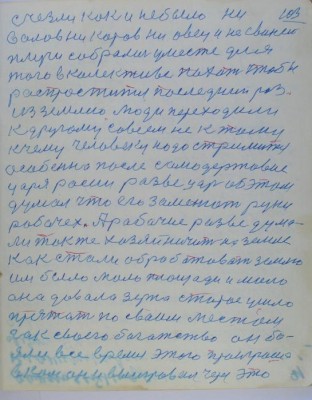 счезли как и небыло ни 103
валов ни каров ни овец и не свиней
плуги собрали уместе для
того в калективе пахат чтобы
растростит последний роз.
из землею люди переходили
к другому совсем не к толку
к чему человеку надо стремится
особенно после самодержавие
царя расии разве царь об этом
думал что его заменят руки
рабочех. А рабочие разве дума-
ли так же хазяйничат на земле
как стали обрабатоват землю
им было мало площади и мало
она давала зерна старое ушло
прятат по сваим местам
как своего багатство он бо-
яли все время этого